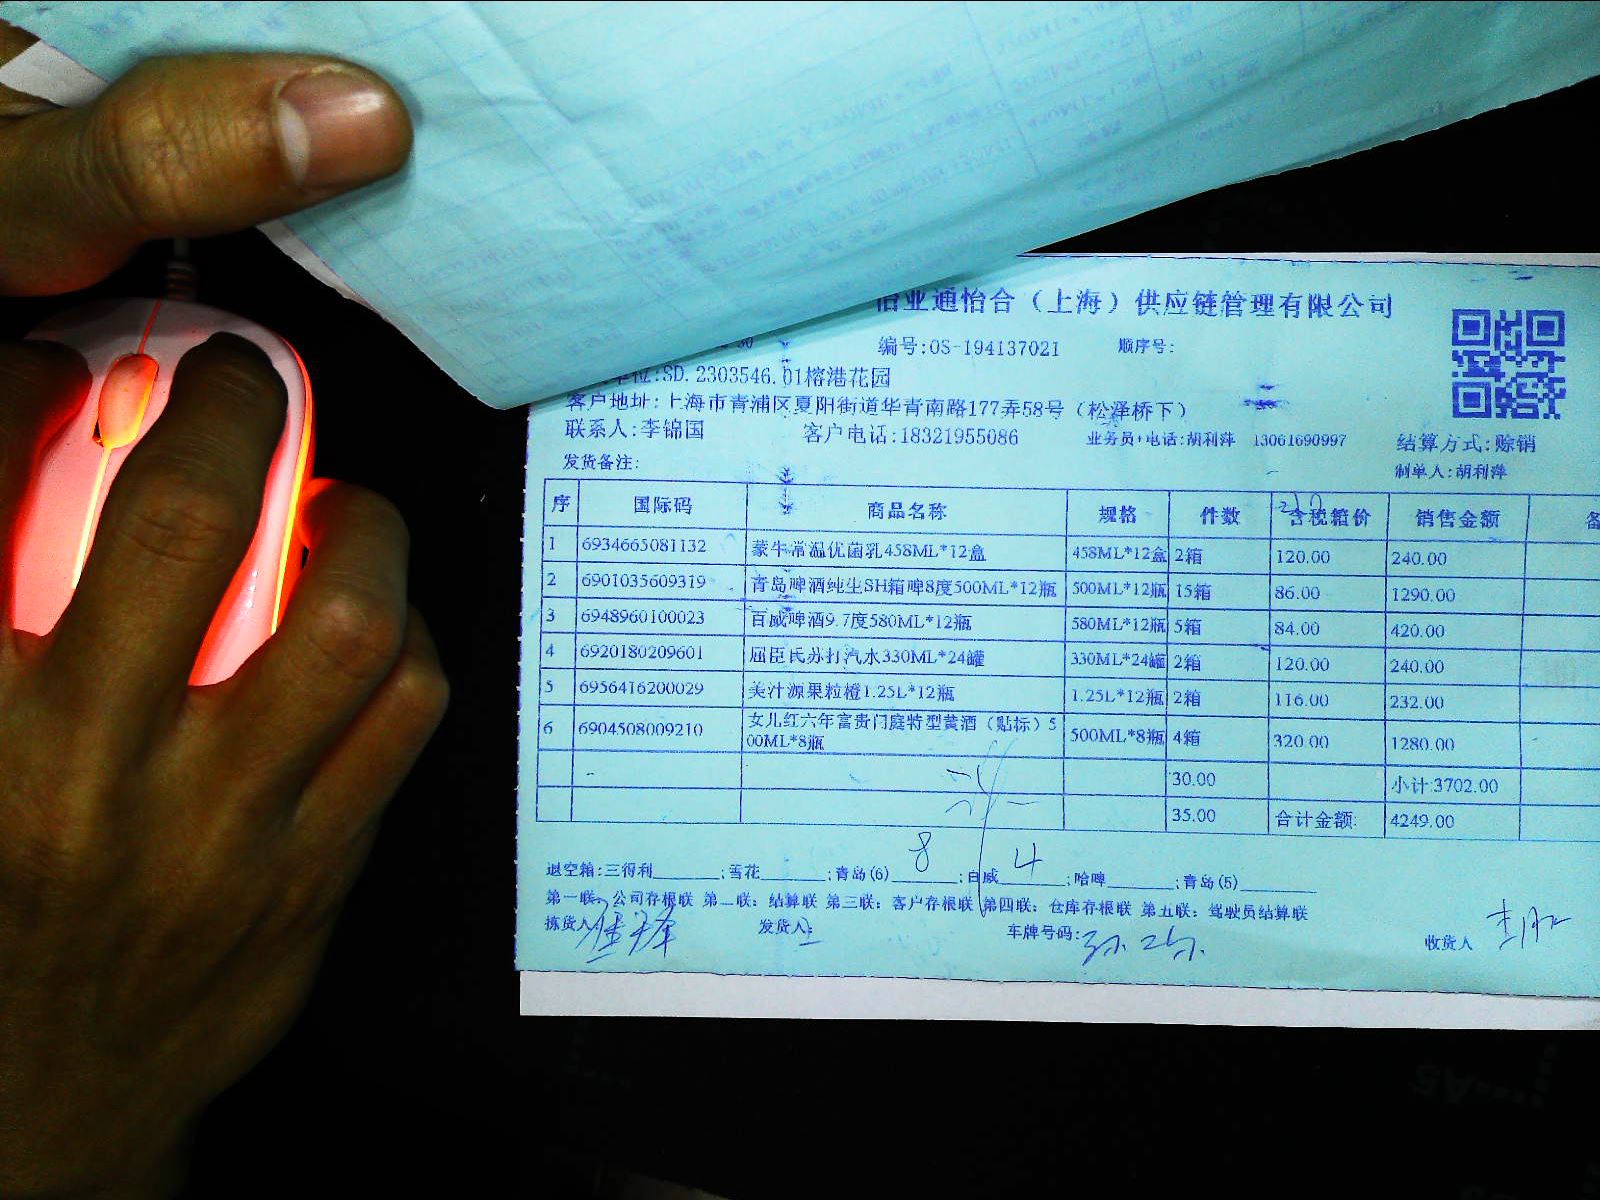 业通怡合（上海）供应链管理有限公司
编号:OS-194137021 顺序号:
单位:SD.2303546.01榕港花园
客户地址:上海市青浦区夏阳街道华青南路177弄58号（松泽桥下）
联系人:李锦国 客户电话:18321955086 业务员+电话:胡利萍 13061690997 结算方式:赊销
发货备注: 制单人:胡利萍
序 国际码 商品名称 规格 件数 含税箱价 销售金额 备
1 6934665081132 蒙牛常温优菌乳458ML*12盒 458ML*12盒 2箱 120.00 240.00
2 6901035609319 青岛啤酒纯生SH箱啤8度500ML*12瓶 500ML*12瓶 15箱 86.00 1290.00
3 6948960100023 百威啤酒9.7度580ML*12瓶 580ML*12瓶 5箱 84.00 420.00
4 6920180209601 屈臣氏苏打汽水330ML*24罐 330ML*24罐 2箱 120.00 240.00
5 6956416200029 美汁源果粒橙1.25L*12瓶 1.25L*12瓶 2箱 116.00 232.00
6 6904508009210 女儿红六年富贵门庭特型黄酒（贴标）5
00ML*8瓶 500ML*8瓶 4箱 320.00 1280.00
30.00 小计:3702.00
35.00 合计金额: 4249.00
退空箱:三得利______;雪花______;青岛(6) 8 ;百威 4 ;哈啤______;青岛(5)______
第一联:公司存根联 第二联:结算联 第三联:客户存根联 第四联:仓库存根联 第五联:驾驶员结算联
拣货人: 发货人: 车牌号码: 收货人